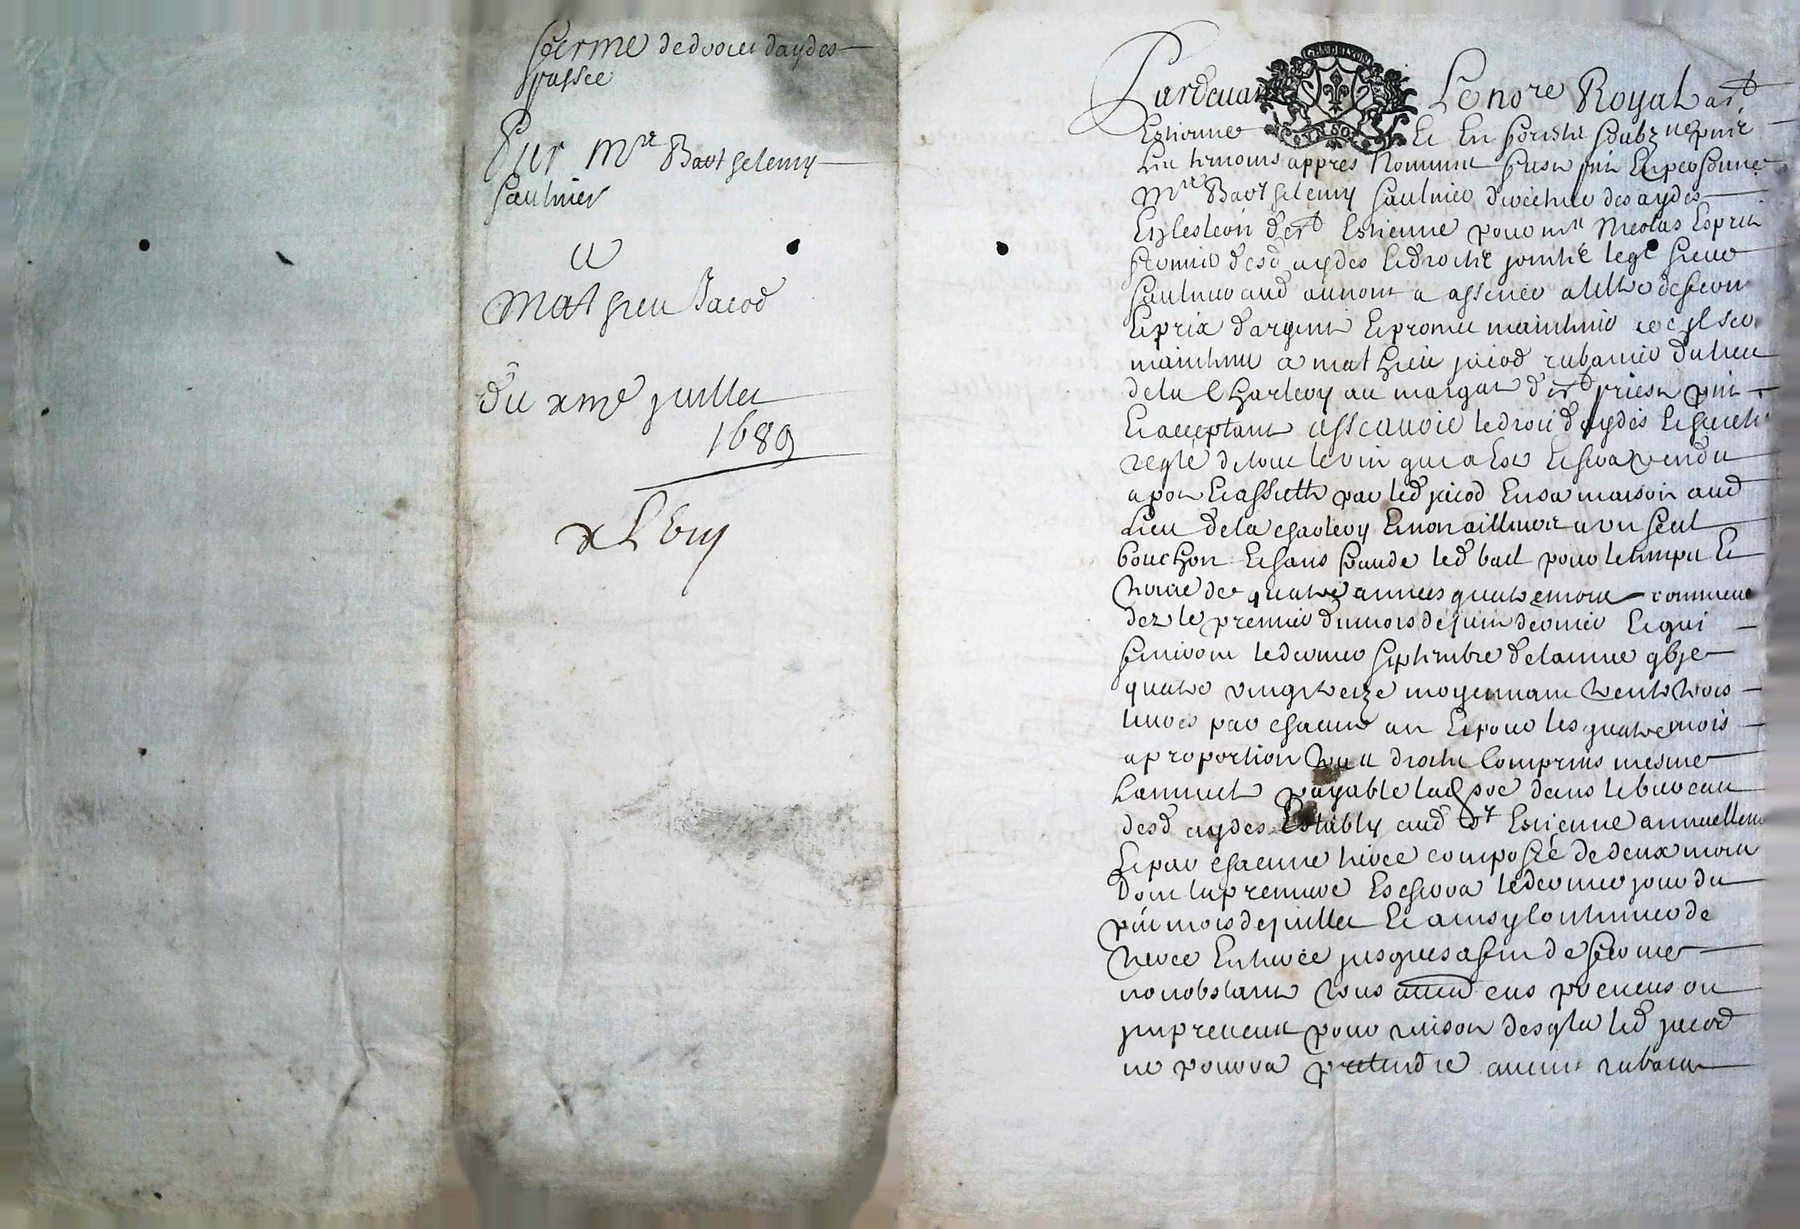 fferme de droict daydes
passée
Par Mre Barthelemy
Saulnier
A
Mathieu Jacod
du xme juillet
1689
Pardevant Le nore Royal a st
Estienne Et En forestz soubzne
Les tesmoins appres Nommes feust pnt En personne
Mre Barthelemy Saulnier directeur des aydes
En leslection de st Estienne pour mr Nicolas Esprit
fermier desd aydes Et droictz joinctz leql sieur
Saulnier aud nom a assencé a tiltre de ferme
Et prix d'argent Et promet maintenir
maintenu a Mathieu jacod rubanier du lieu
de la Charlevy au de st priest pnt
Et acceptant assavoir le droict d'aydes Et
reglé de tout le vin qui a Esté Et sera vendu
a pot Et assiette par led jacod En sa maison aud
Lieu de la Charlevy Et non ailleurs a un seul
bouchon Et sans fraude led bail pour le temps Et
terme de quatre années quatre mois commencé
dez le premier du mois de juin dernier Et qui
finiront le dernier septembre de lannée
quatre vingt treize moyennant trente trois
livres par chacun an Et pour les quatre mois
a proportion tous droictz Comprins mesme
Lannuel payable dans le bureau
desd aydes Estably aud st Estienne annuellemt
Et par chacune tierce composée de deux mois
dont la premiere Escherra le dernier jour du
pnt mois de juillet Et ainsy Continuer de
tierce En tierce jusques a fin de ferme
nonobstant tous cas preveus ou
jmpreveus pour raison desqlz led jacod
ne pourra pretendre aucun rabais